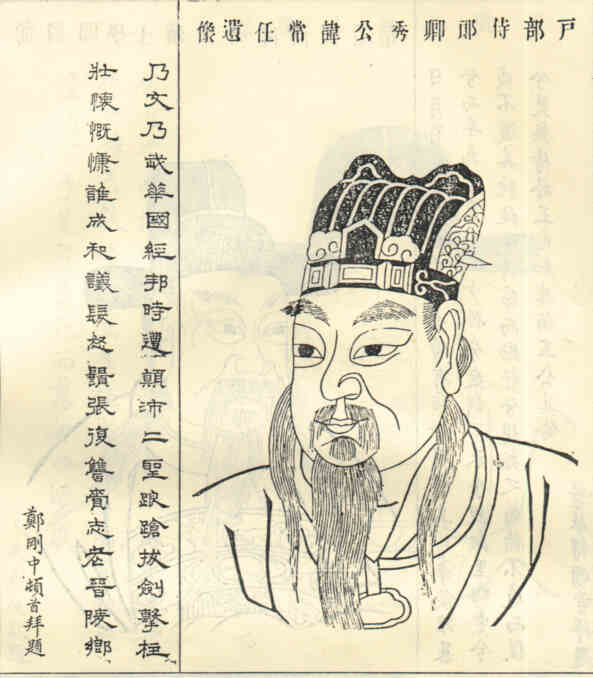 戶部侍郎卿秀公諱常任遺像
乃文乃武華國經邦時遭顛沛二聖踉蹌拔劍擊柱
壯懷慨慷誰成和議髮怒鬚張復讐賫志老晉陵鄉
鄭剛中頓首拜題